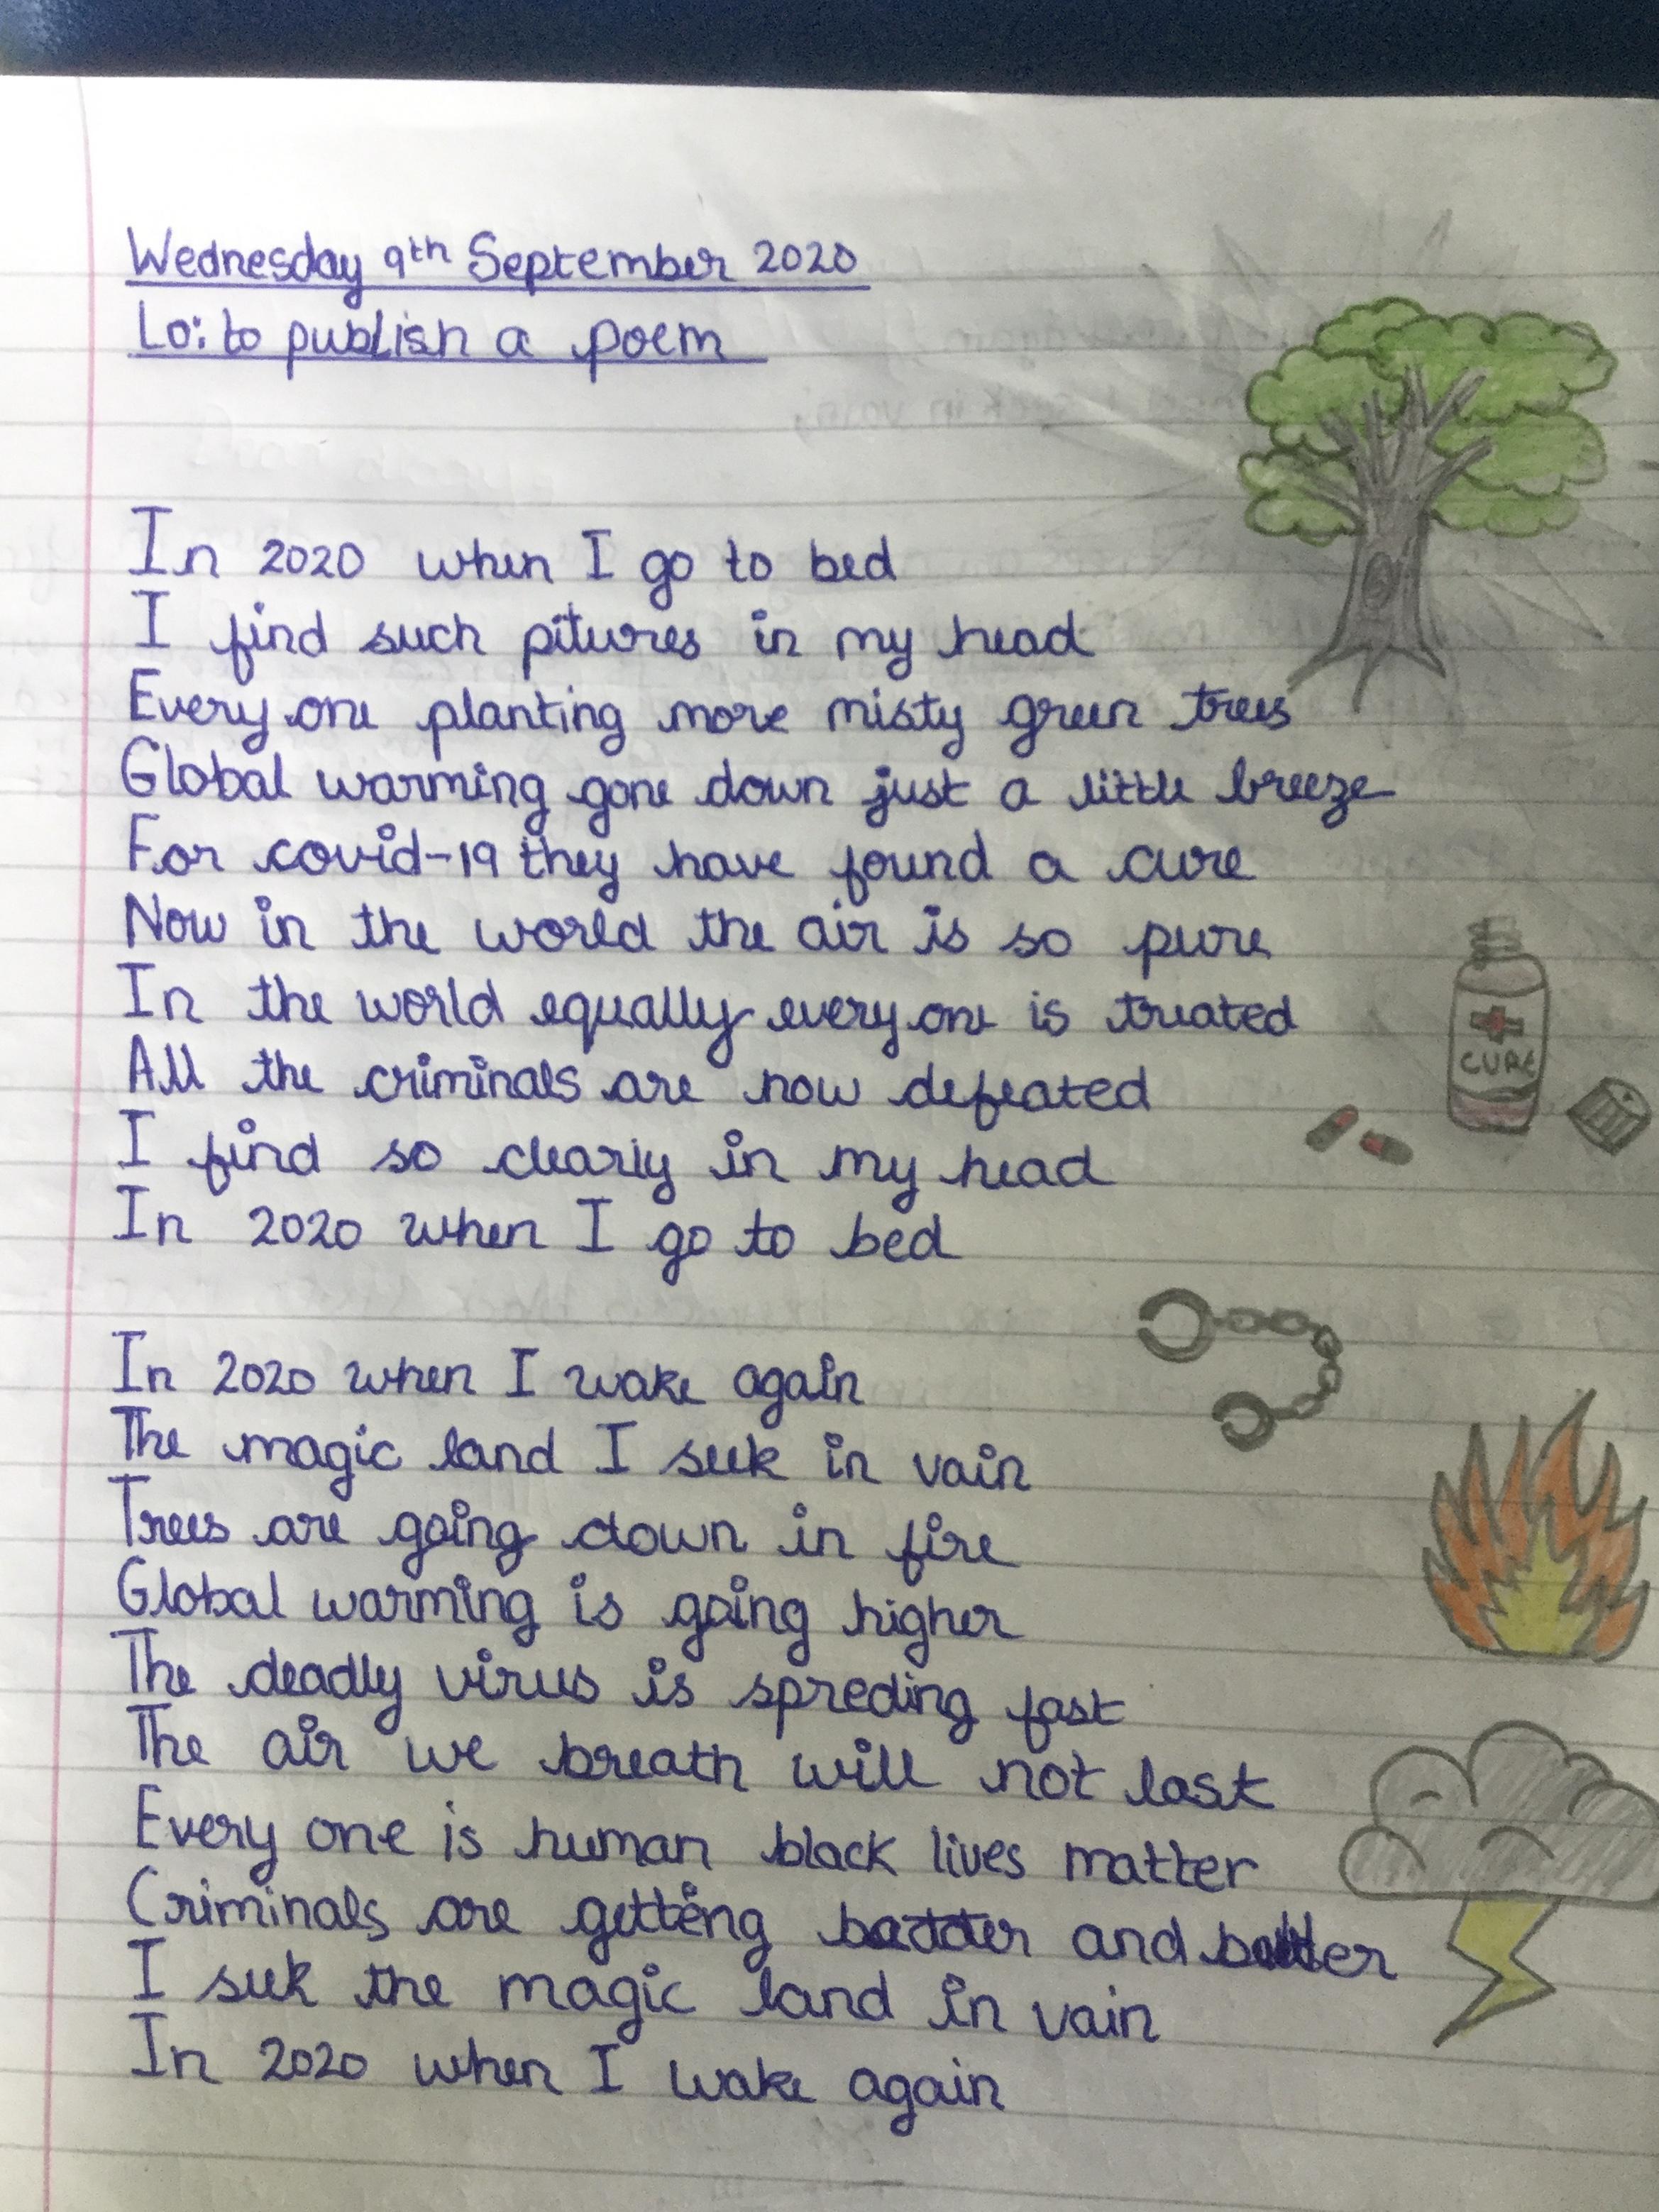 Wednesday 9th September 2020
Lo: to publish a poem
In 2020 when I go to bed
I find such pitures in my head
Every one planting more misty green trees
Global warming gone down just a little breeze
For covid-19 they have found a cure
Now in the world the air is so pure
In the world equally every one is treated
CURE
All the criminals are now defeated
I find so clearly in my head
In 2020 when I go to bed
In 2020 when I wake again
The magic land I seek in vain
Trees are going down in fire
Global warming is going higher
The deadly virus is spreding fast
The air we breath will not last
Every one is human black lives matter
Criminals are getting badder and
I seek the magic land in vain
In 2020 when I wake again